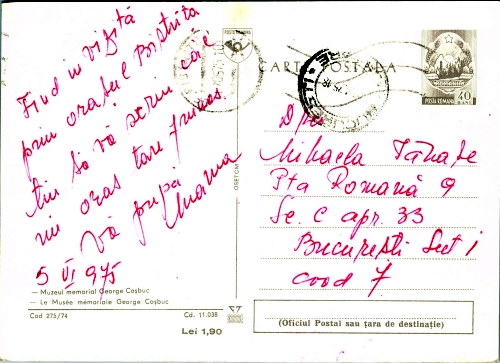 Fiind in vizită
prin orașul Bistrița
țin să vă scriu că e
un oraș tare frumos.
Vă pupă
Mama
5 VI 975
— Muzeul memorial George Coșbuc
— Le Musée mémoriale George Coșbuc
Cod 275/74
Cd. 11.038
Lei 1,90
CARTE POSTALA
POSTA ROMANA
40
Mihaela Tănase
Pta Romană 9
Sc. C apr. 33
București Sect 1
cood 7
(Oficiul Postal sau țara de destinație)